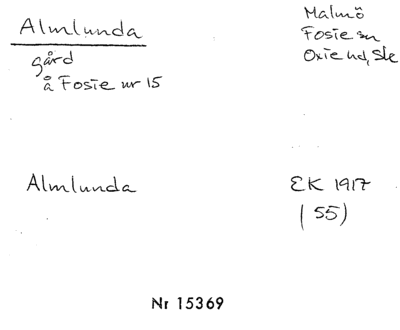 Almlunda
gård
å Fosie nr 15
Malmö
Fosie sn
Oxie hd, Sk
Almlunda
EK 1917
(55)
Nr 15369